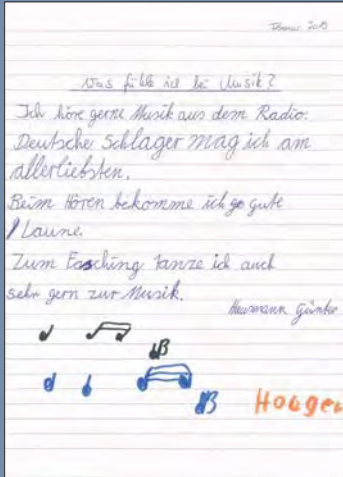 Was fühle ich bei Musik?
Ich höre gerne Musik aus dem Radio.
Deutsche Schlager mag ich am
allerliebsten.
Beim Hören bekomme ich gute
Laune.
Zum Fasching tanze ich auch
sehr gern zur Musik.
Günter